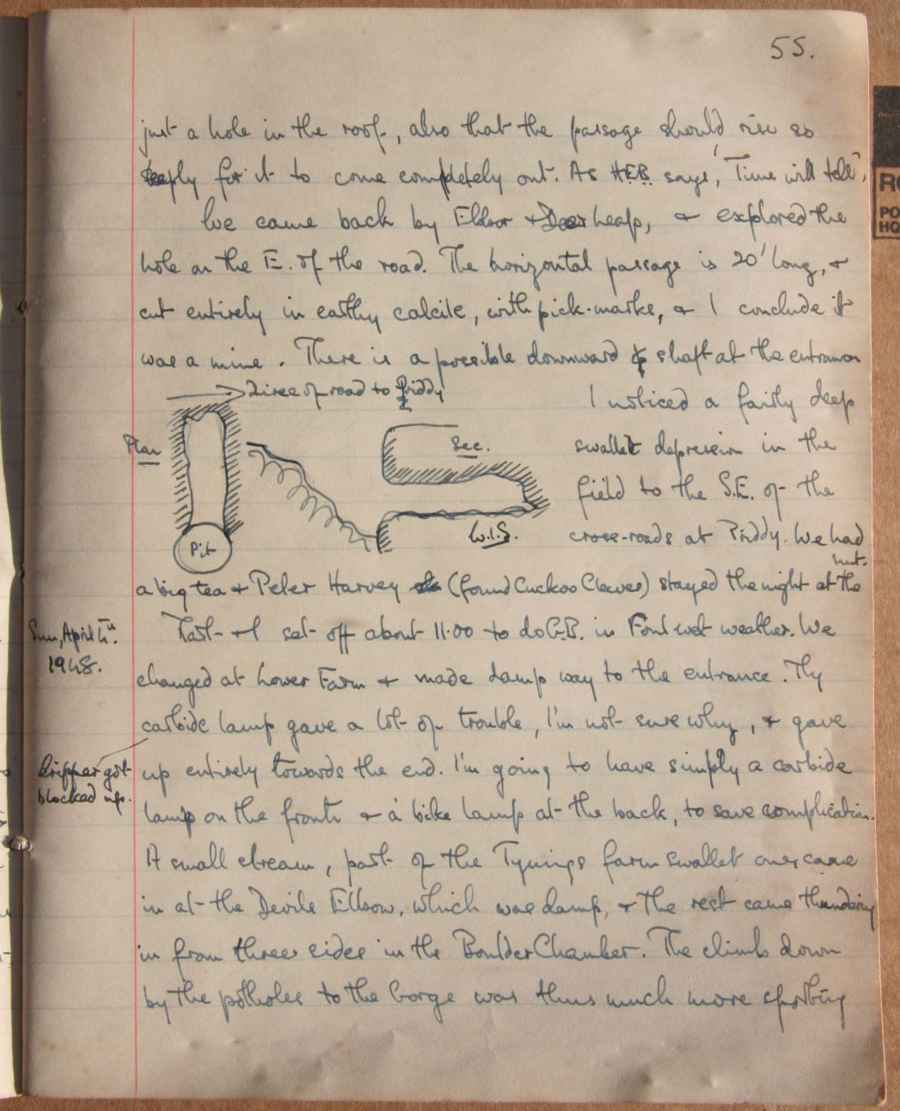 55.
just a hole in the roof, also that the passage should rise so
steeply for it to come completely out. As HEB. says, 'Time will tell'.
We came back by Ebbor & Deerheaps, & explored the
hole on the E. of the road. The horizontal passage is 20' long, &
cut entirely in earthy calcite, with pick-marks, & I conclude it
was a mine. There is a possible downward shaft at the entrance
Direc of road to Priddy
Plan
Pit
Sec.
W.I.S.
I noticed a fairly deep
swallet depression in the
field to the S.E. of the
cross-roads at Priddy. We had
a big tea & Peter Harvey (found Cuckoo Cleeves) stayed the night at the
hut.
Sun, April 4th.
1948.
& I set off about 11.00 to do G.B. in wet weather. We
changed at Lower Farm & made damp way to the entrance. My
carbide lamp gave a lot of trouble, I'm not sure why, & gave
Dripper got
blocked up.
up entirely towards the end. I'm going to have simply a carbide
lamp on the front & a bike lamp at the back, to save complication.
A small stream, part of the Tynings farm swallet one, came
in at the Devils Elbow, which was damp, & the rest came thundering
in from three sides in the Boulder Chamber. The climb down
by the potholes to the Gorge was thus much more sporting